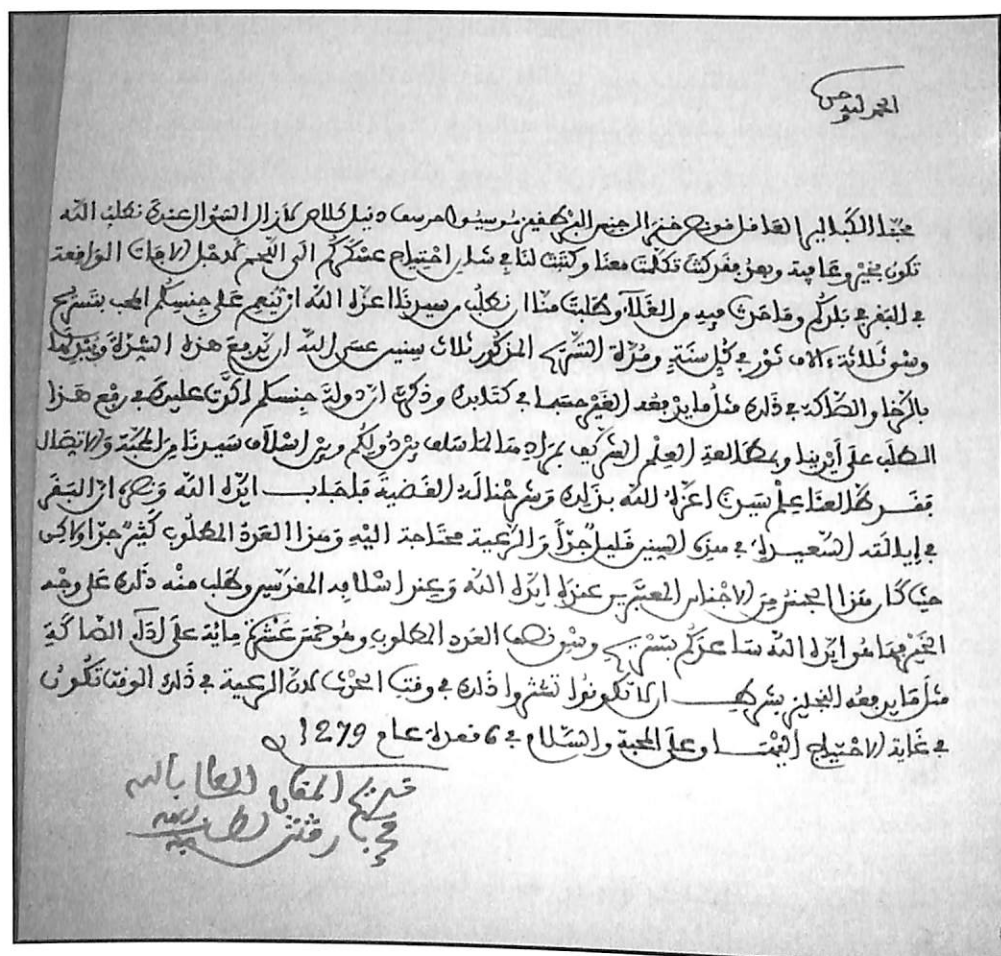 الحمد لله وحده
محبنا الكبالير العاقل قونصو جنرال جنس موسيو دنيل كلام لازال السؤال عنك نطلب الله
تكون بخير وعافية وبعد فقد كنت تكلمت معنا وكتبت لنا في شان احتياج عسكركم الى اللحم لاجل الافات الواقعة
في البقر في بلدكم وما حدث فيه من الغلاء وطلبت منا ان نطلب من سيدنا اعزه الله ان ينعم على جنسكم المحب بتسريح
وسو ثلاثة ءالاف ثور في كل سنة ومدة التسريح المذكور ثلاث سنين عسى الله ان يرفع هذه الشدة ويبدلها
بالرخا والصاكة في ذلك مثل ما يدفعه الغير حسبما في كتابك وذكرت ان دولة جنسكم اكدت عليك في رفع هذا
الطلب على أيدينا وبمطالعة العلم الشريف بمراد هذا لما سلف بين دولكم وبين اسلاف سيدنا من المحبة والاتصال
فقد طالعنا علم سيدنا اعزه الله بذلك وشرحنا له القضية فاجاب ايده الله ونصره ان البقر
في إيالته السعيدة في هذه السنين قليل جدا والرعية محتاجة اليه وهذا العدد المطلوب كثير جدا ولاكن
حيث كان هذا الجنس من الاجناس المعتبرين عنده ايده الله وعند اسلافه المقدسين وطلب منه ذلك على وجه
الخير فها هو ايده الله ساعدكم بتسريح وسو نصف العدد المطلوب وهو خمسة عشر مائة على اداء الصاكة
مثل ما يدفعه النجليز بشرط ان لا تكونوا تشتروا ذلك في وقت الحرث لان الرعية في ذلك الوقت تكون
في غاية الاحتياج اليه وعلى المحبة والسلام في 6 قعدة عام 1279
خديم المقام العالي بالله
محمد بركاش لطف الله به